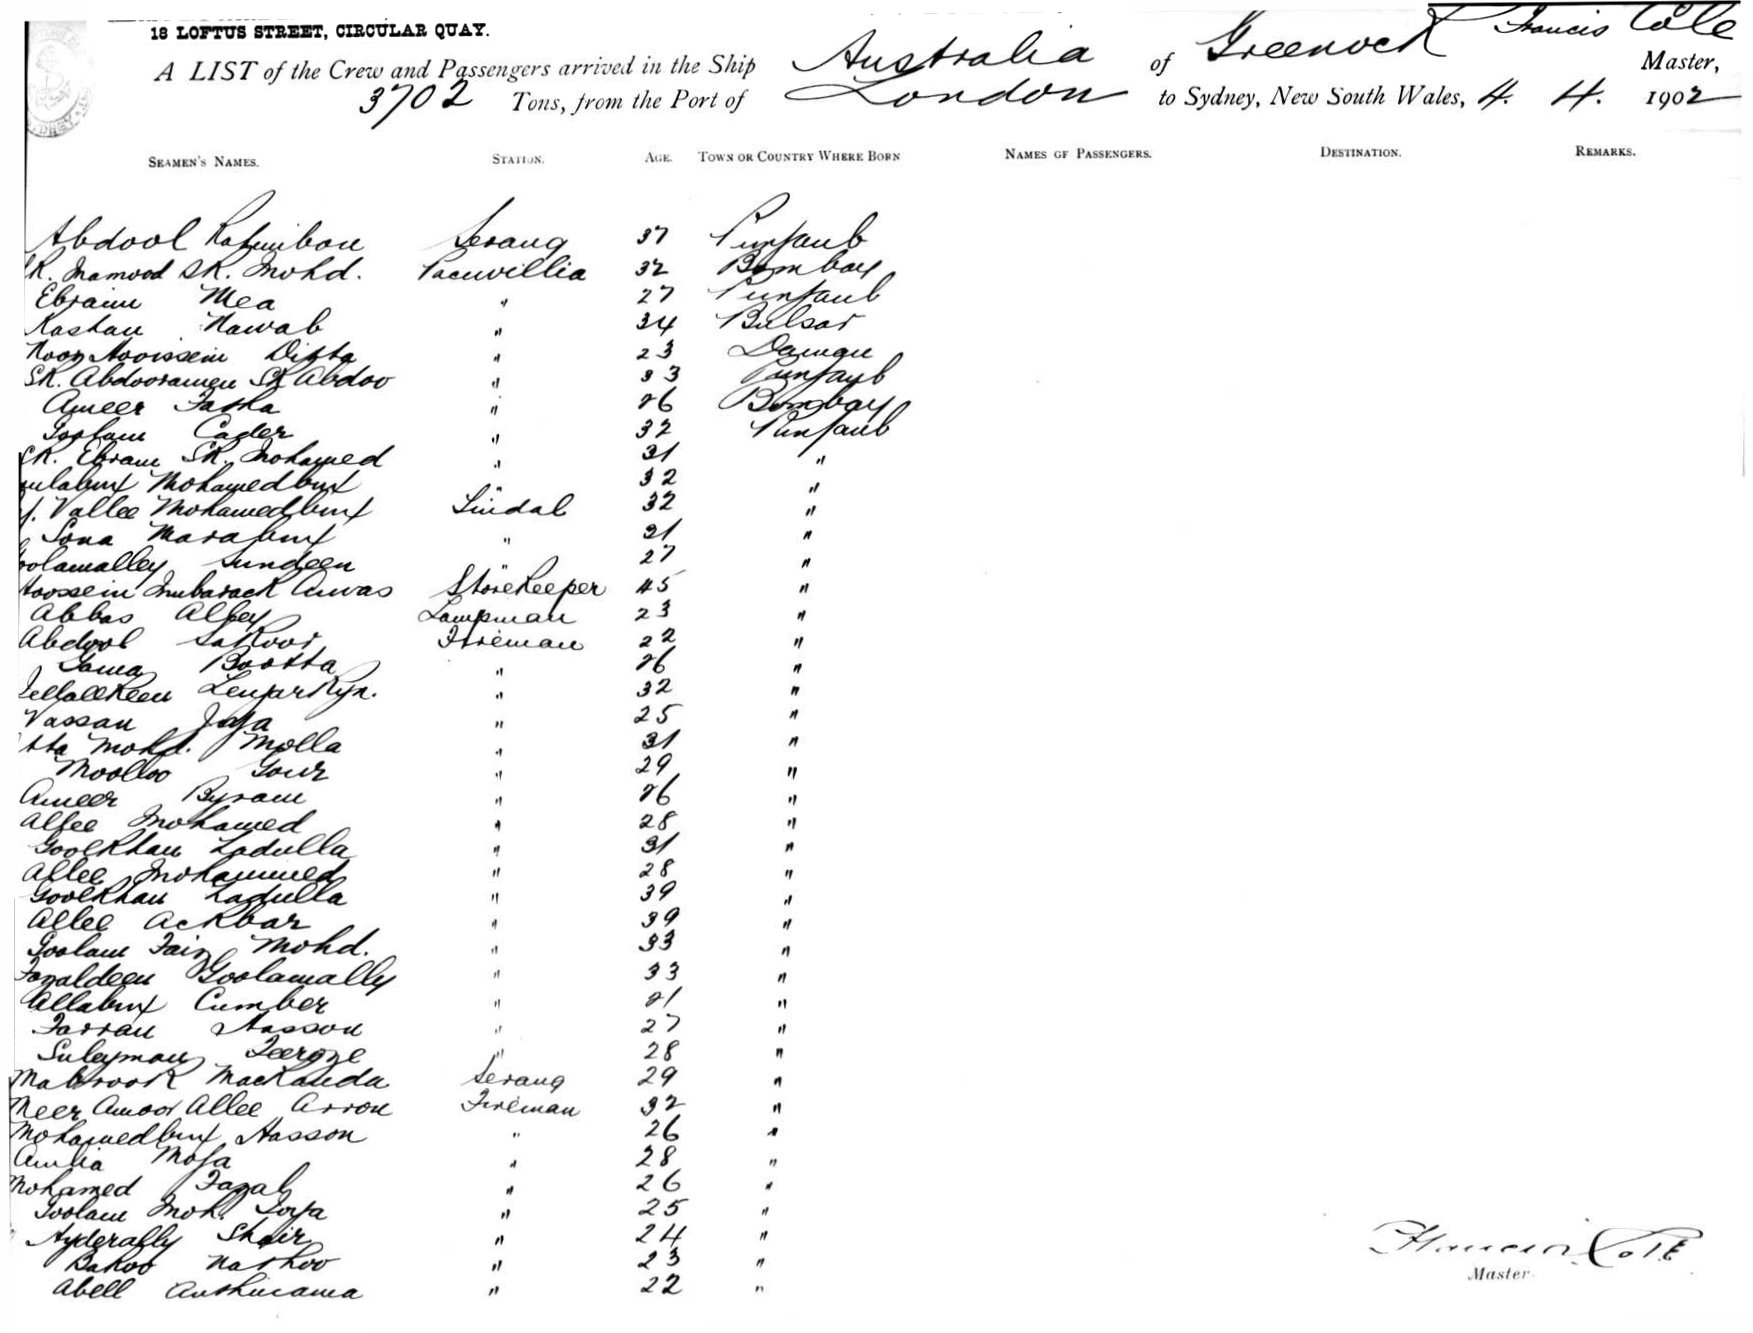 18 LOFTUS STREET, CIRCULAR QUAY.
A LIST of the Crew and Passengers arrived in the Ship Australia of Greenock Francis Cole Master,
3702 Tons, from the Port of London to Sydney, New South Wales, 4. 4. 1902
SEAMEN'S NAMES. STATION. AGE. TOWN OR COUNTRY WHERE BORN NAMES OF PASSENGERS. DESTINATION. REMARKS.
Abdool Serang 37 Punjaub
SK. Mamood SK. Mohd. 32 Bombay
Ebraim Mea " 27 Punjaub
Nawab " 34 Bulsar
Noor Hoossein Ditta " 23 Daman
SK. Abdooramen SK Abdoo " 33 Punjaub
Ameer " 26 Bombay
Goolam Cader " 32 Punjaub
SK. Ebram SK. Mohamed " 31 "
Mohamedbux " 32 "
Vallee Mohamedbux Tindal 32 "
Sona " 31 "
Jundeen " 27 "
Hoossein Mubarack Awas Storekeeper 45 "
Abbas Alley Lampman 23 "
Abdool Sakoor Fireman 22 "
Gama Bootta " 26 "
" 32 "
Vassan " 25 "
Mohd. Molla " 31 "
Moolloo Gour " 29 "
Ameer Byram " 26 "
Allee Mohamed " 28 "
Goolkhan Ladulla " 31 "
Allee Mohammed " 28 "
Goolkhan Ladulla " 39 "
Allee Ackbar " 39 "
Goolam Faiz Mohd. " 33 "
Fazaldeen Goolamally " 33 "
Allabux Cumber " 21 "
Farran Hasson " 27 "
Suleyman Feeroze " 28 "
Mabrook Mackanda Serang 29 "
Meer Amoor Allee Arron Fireman 32 "
Mohamedbux Hasson " 26 "
Amlia Mosa " 28 "
Mohamed Fazal " 26 "
Goolam Moh. " 25 "
Hyderally Shair " 24 "
Bakoo Nathoo " 23 "
Abell " 22 "
Francis Cole
Master.